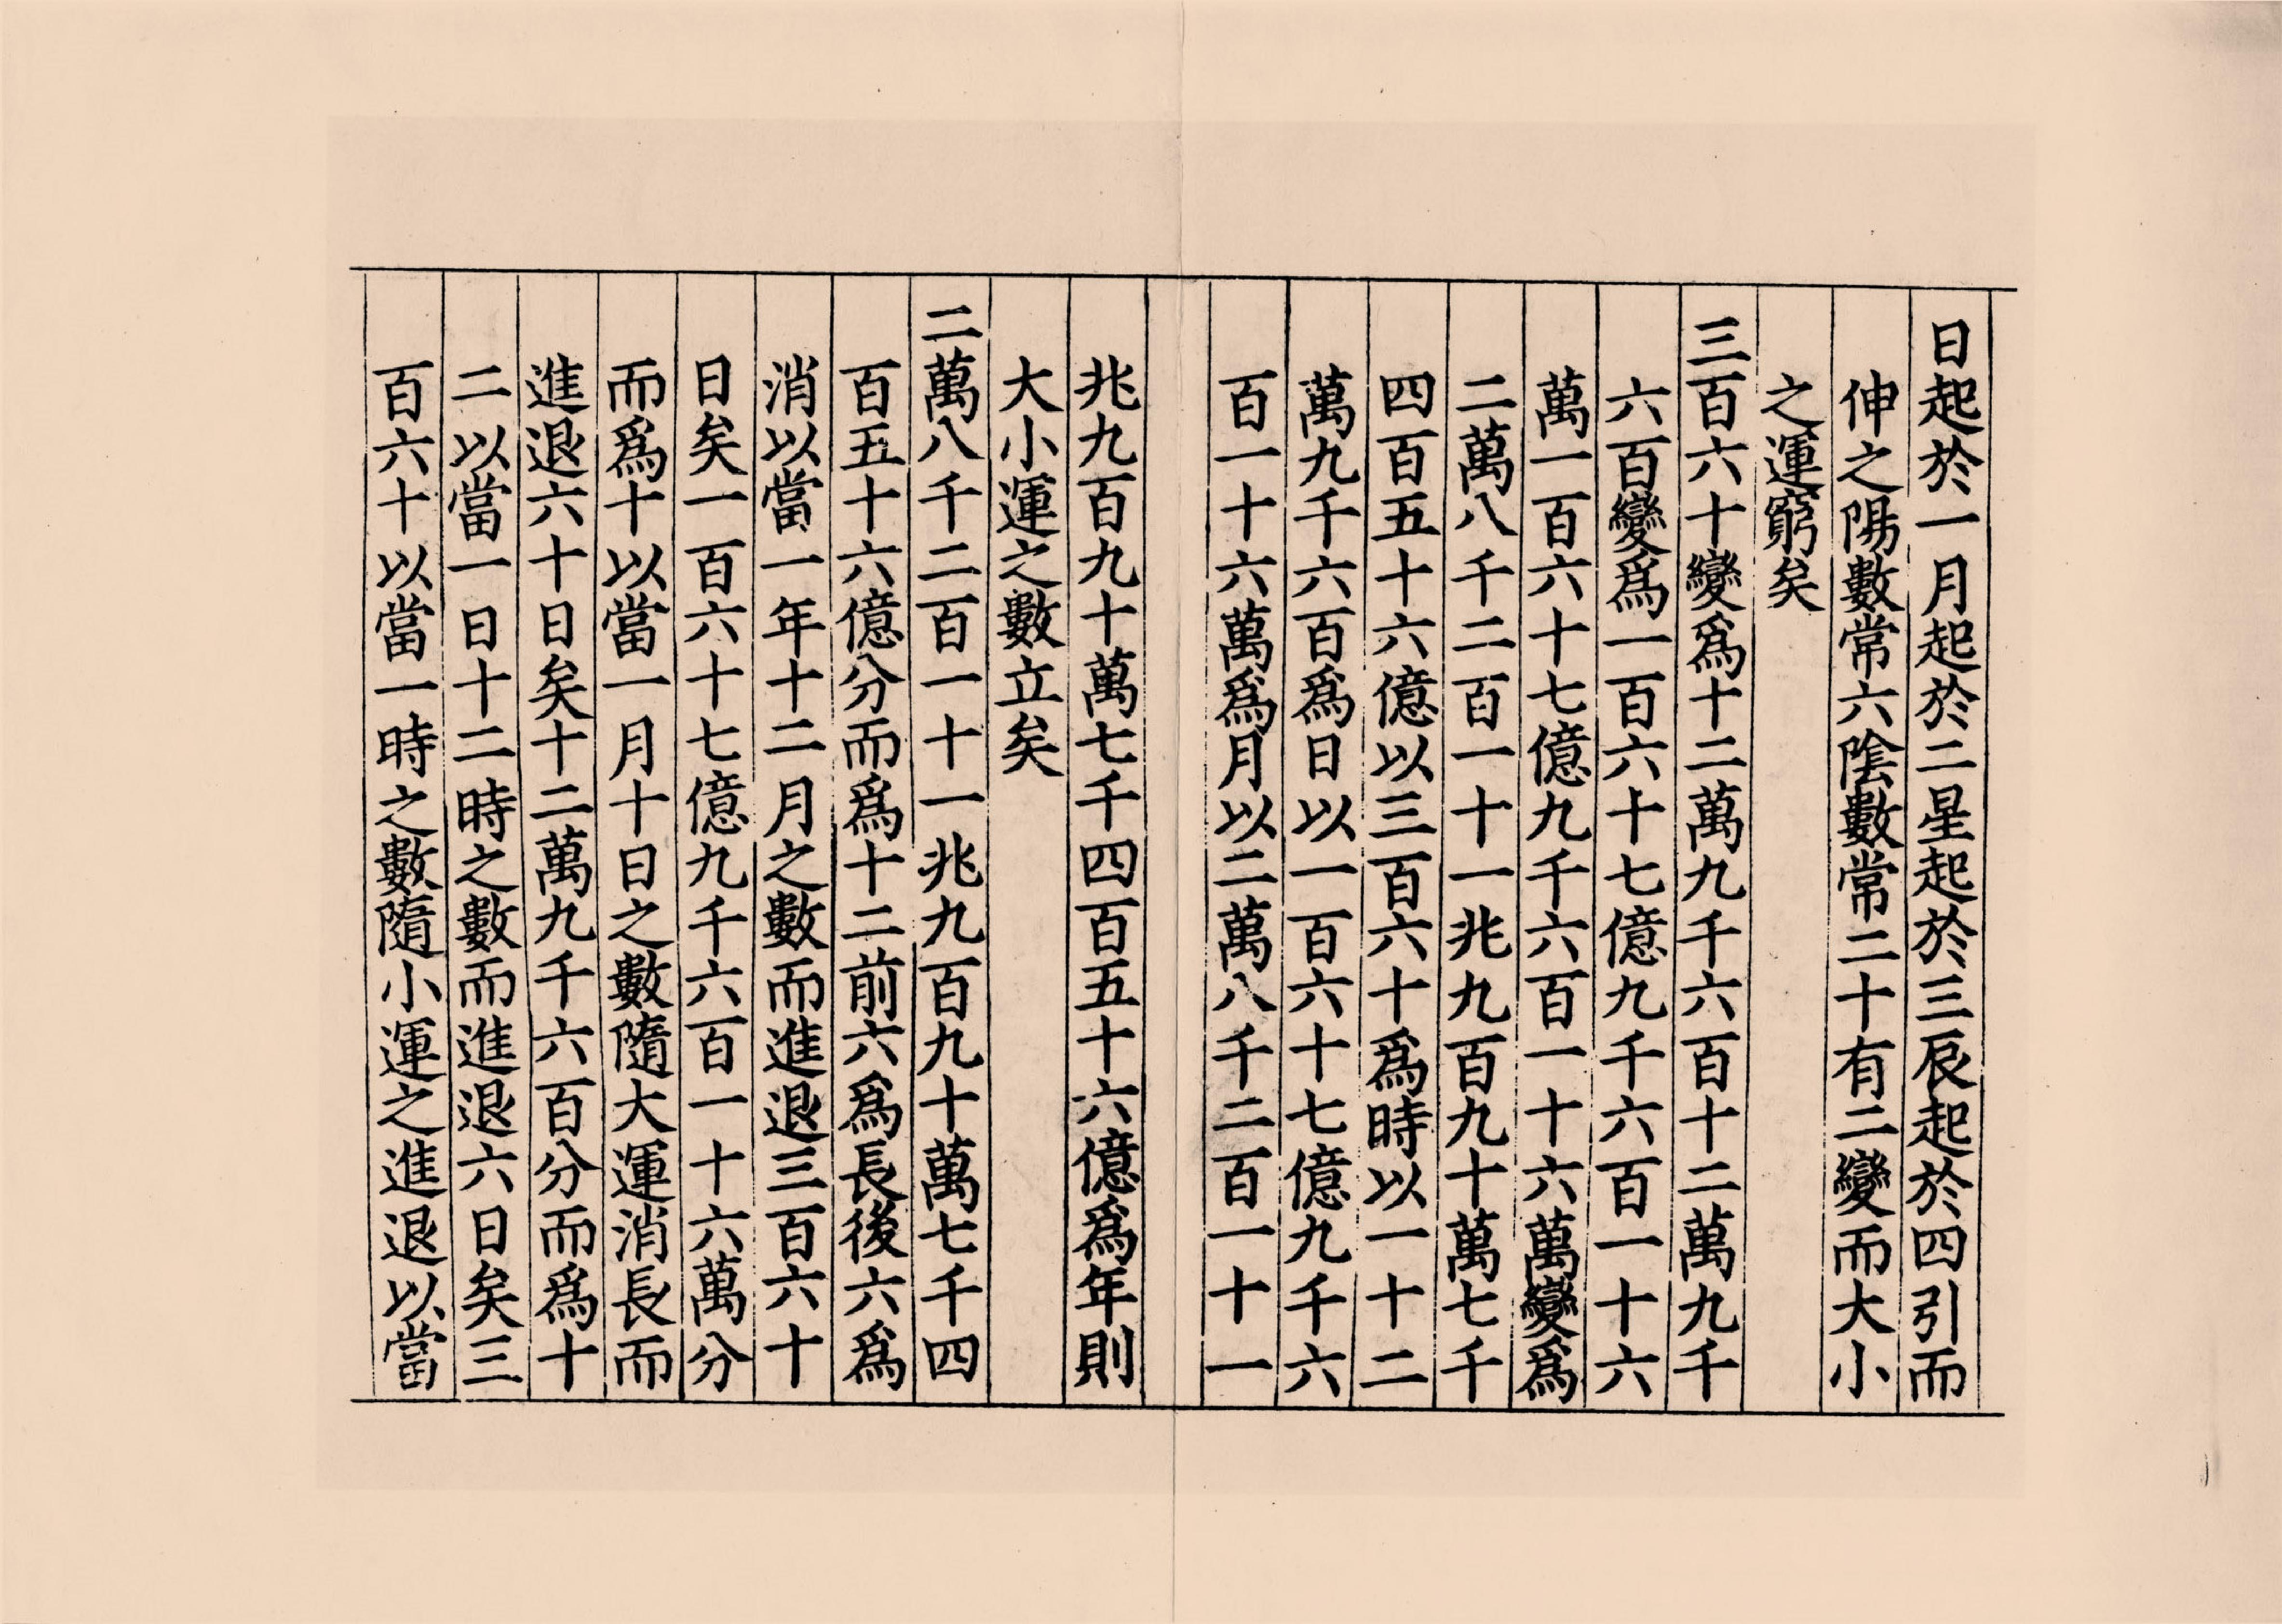 日起於一月起於二星起於三辰起於四引而
伸之陽數常六陰數常二十有二變而大小
之運窮矣
三百六十變爲十二萬九千六百十二萬九千
六百變爲一百六十七億九千六百一十六
萬一百六十七億九千六百一十六萬變爲
二萬八千二百一十一兆九百九十萬七千
四百五十六億以三百六十爲時以一十二
萬九千六百爲日以一百六十七億九千六
百一十六萬爲月以二萬八千二百一十一
兆九百九十萬七千四百五十六億爲年則
大小運之數立矣
二萬八千二百一十一兆九百九十萬七千四
百五十六億分而爲十二前六爲長後六爲
消以當一年十二月之數而進退三百六十
日矣一百六十七億九千六百一十六萬分
而爲十以當一月十日之數隨大運消長而
進退六十日矣十二萬九千六百分而爲十
二以當一日十二時之數而進退六日矣三
百六十以當一時之數隨小運之進退以當